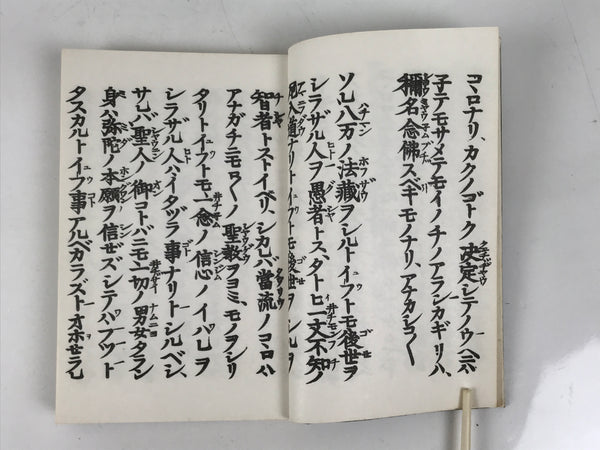 コヽロナリ、カクノゴトク決定シテノウヘニハ
子テモサメテモイノチノアランカギリハ、
稱名念佛スベキモノナリ、アナカシコ〱
ソレ八万ノ法藏ヲシルトイフトモ後世ヲ
シラザル人ヲ愚者トス、タトヒ一文不知ノ
尼入道ナリトイフトモ後世ヲシルヲ
智者トストイヘリ、シカレバ當流ノコヽロハ
アナガチニモロ〱ノ聖教ヲヨミ、モノヲシリ
タリトイフトモ、一念ノ信心ノイハレヲ
シラザル人ハイタヅラ事ナリトシルベシ、
サレバ聖人ノ御コトバニモ一切ノ男女タラン
身ハ弥陀ノ本願ヲ信ゼズシテハフツト
タスカルトイフ事アルベカラズトオホセラレ